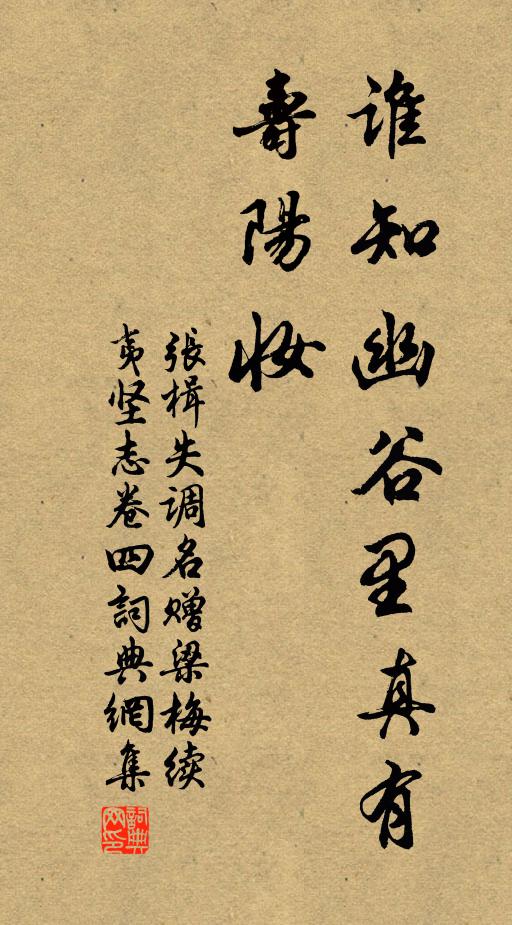 谁知幽谷里真有
壽陽妝
張楫失调名赠梁梅续
夷坚志卷四詞典網集
詞典网印